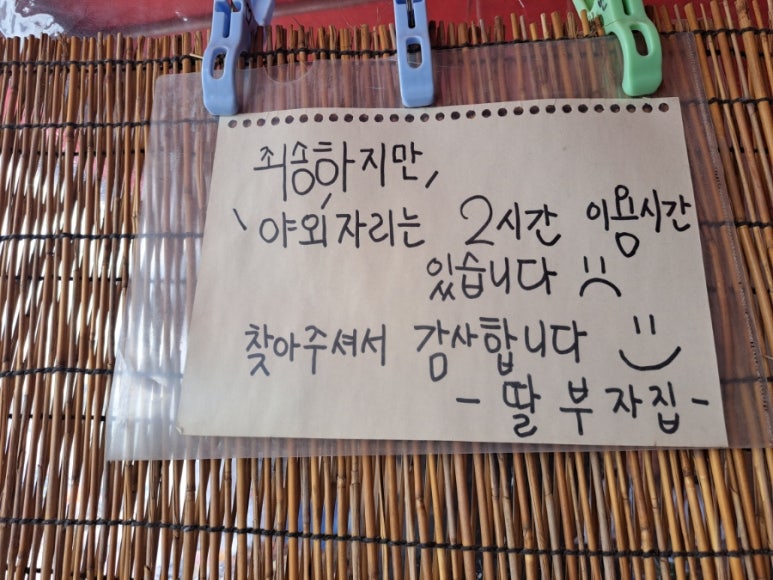 죄송하지만,
'야외자리는 2시간 이용시간
있습니다 :(
찾아주셔서 감사합니다 :)
- 딸 부자집 -